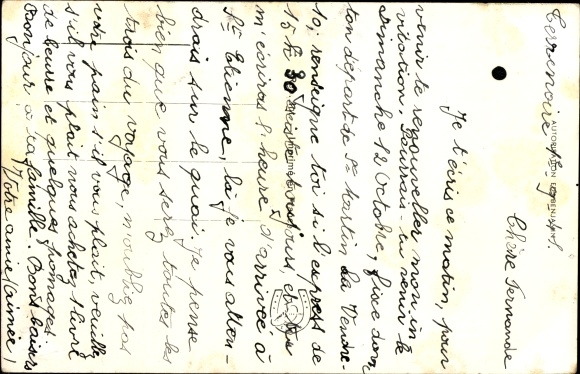 Terrenoire le
Chère Fernande
Je t'écris ce matin, pour
venir te renouveller mon in
vitation. Pourrais-tu venir le
dimanche 12 Octobre, fixe donc
ton départ de St Martin la
10, renseigne toi si l'express de
15 h 30 toujours, et tu
m'écriras l'heure d'arrivée à
St Etienne, la je vous atten-
drais sur le quai. Je pense
bien que vous serez toutes les
trois du voyage, n'oubliez pas
votre pain s'il vous plait, veuillez
s'il vous plait nous acheter 1 livre
de beurre et quelques fromages
Bonjour à ta famille Bons baisers
Votre amie (aimée)
AUTORISATION